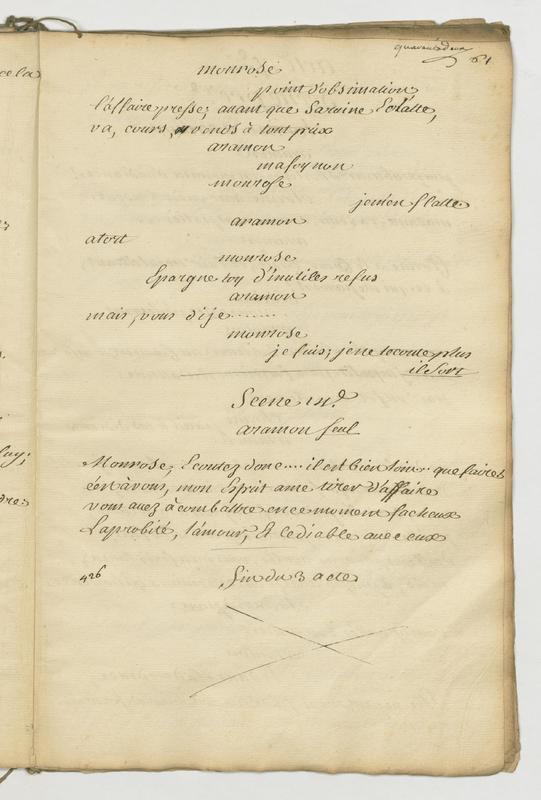 cela
quarante deux
81
monrose
point d'obstination
l'affaire presse; auant que Saruine Eclatte,
va, cours, vends à tout prix
aramon
ma foy non
monrose
jemen flatte
aramon
atort
monrose
Epargne toy d'inutiles refus
aramon
mais, vous dije.......
monrose
je suis; jene tecoute plus
il Sort
Scene 14.e
aramon seul
Monrose, Ecoutez donc.... il est bien loin.. que faire
c'est à vous, mon Esprit ame tirer d'affaire
vous auez à combattre en ce moment facheux
Laprobité, lamour, Et le diable auec eux
426
fin du 3 acte
luy;
dre